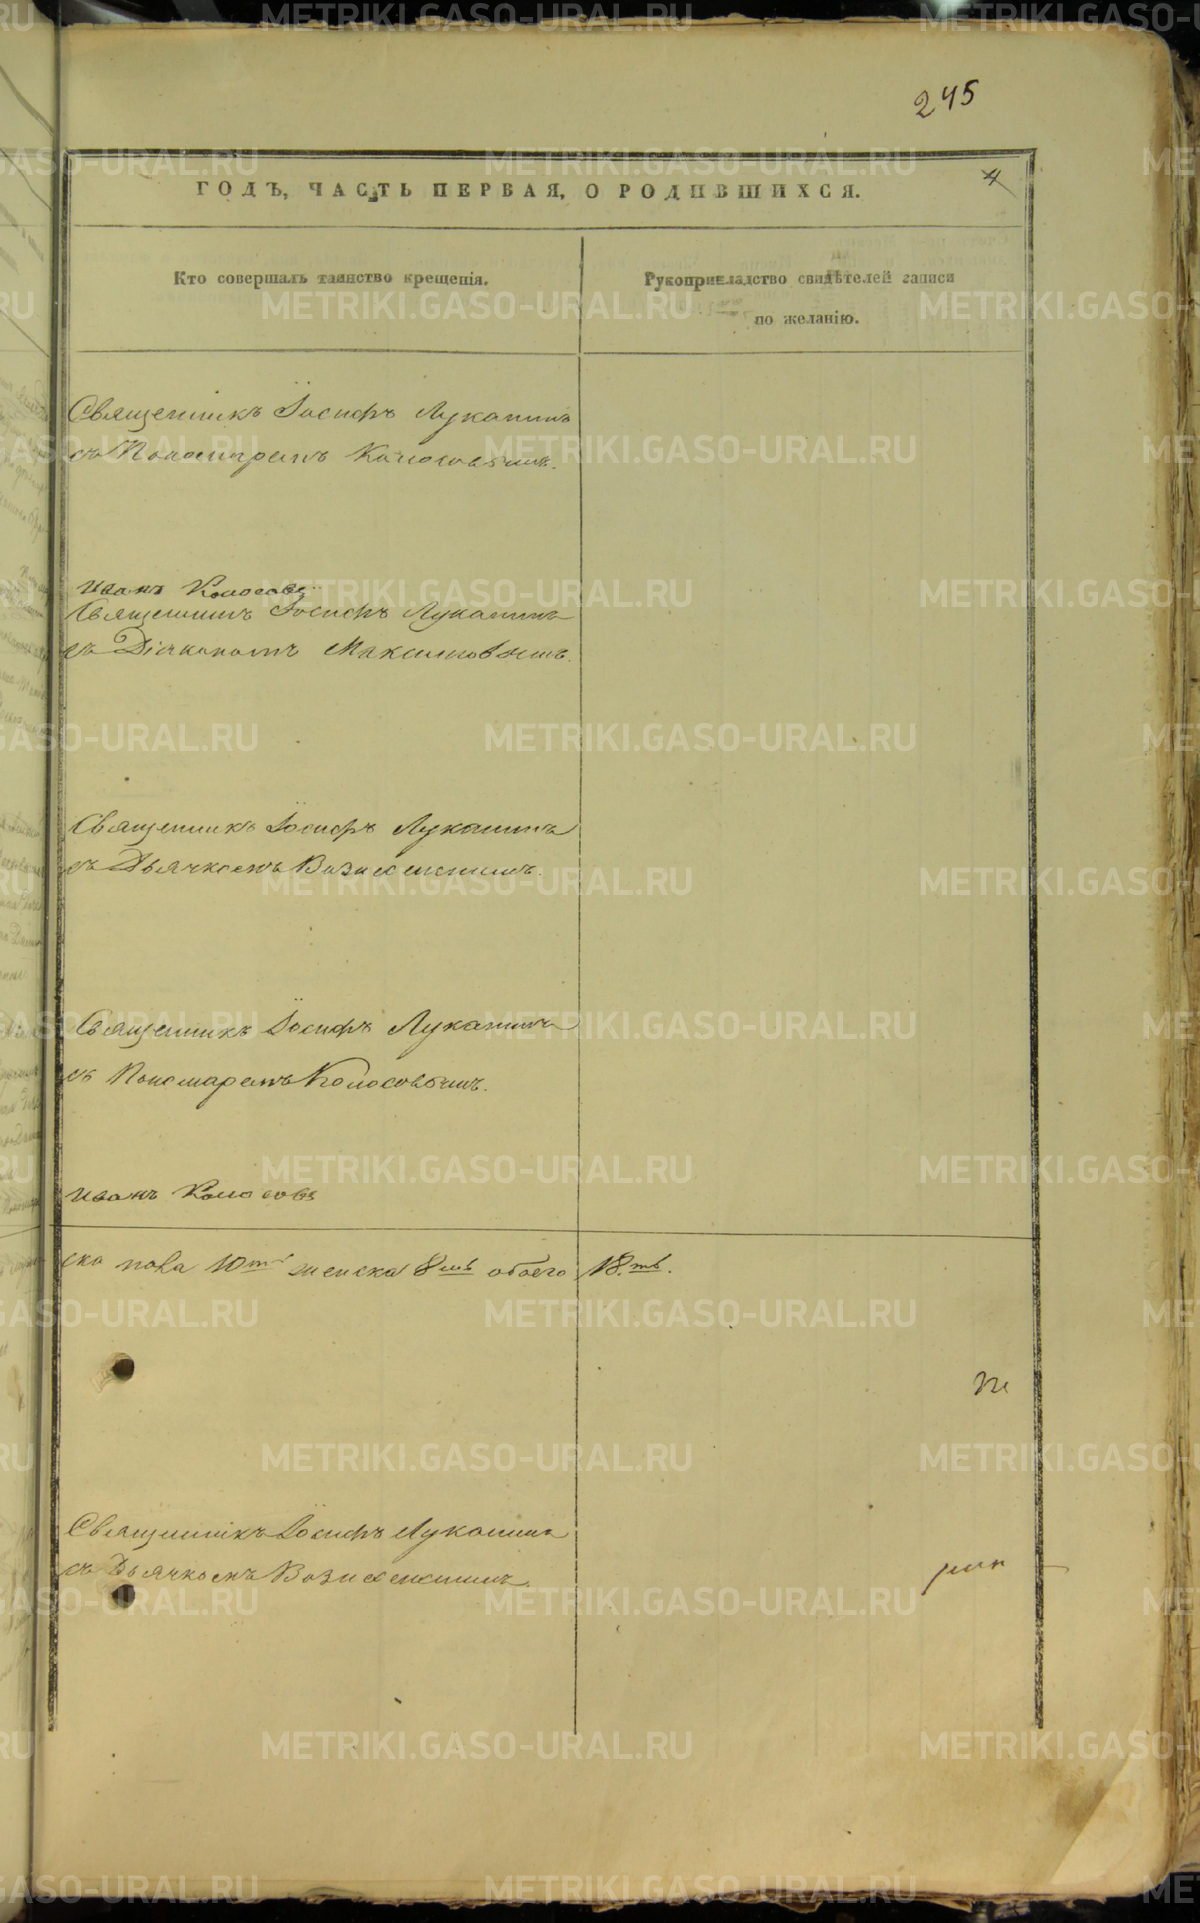 245
4
ГОДЪ, ЧАСТЬ ПЕРВАЯ, О РОДИВШИХСЯ.
Кто совершалъ таинство крещенія.
Рукоприкладство свидѣтелей записи
по желанію.
Священникъ Іосифъ Луканинъ
съ Пономаремъ Колосовымъ.
Иванъ Колосовъ
Священникъ Іосифъ Луканинъ
съ Діакономъ Максимовымъ.
Священникъ Іосифъ Луканинъ
съ Дьячкомъ Вознесенскимъ.
Священникъ Іосифъ Луканинъ
съ Пономаремъ Колосовымъ.
Иванъ Колосовъ
ска пола 10ть женска 8мь обоего 18.ть.
Священникъ Іосифъ Луканинъ
съ Дьячкомъ Вознесенскимъ.
METRIKI.GASO-URAL.RU